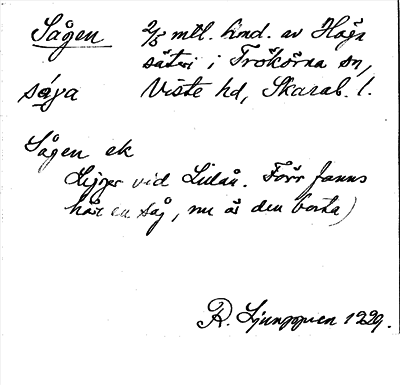 Sågen 2/5 mtl. hmd. av Höga
säteri i Trökörna sn,
såga Viste hd, Skarab. l.
Sågen ek
Ligger vid Lidan. Förr fanns
här en såg, nu är den borta)
R. Ljunggren 1929.